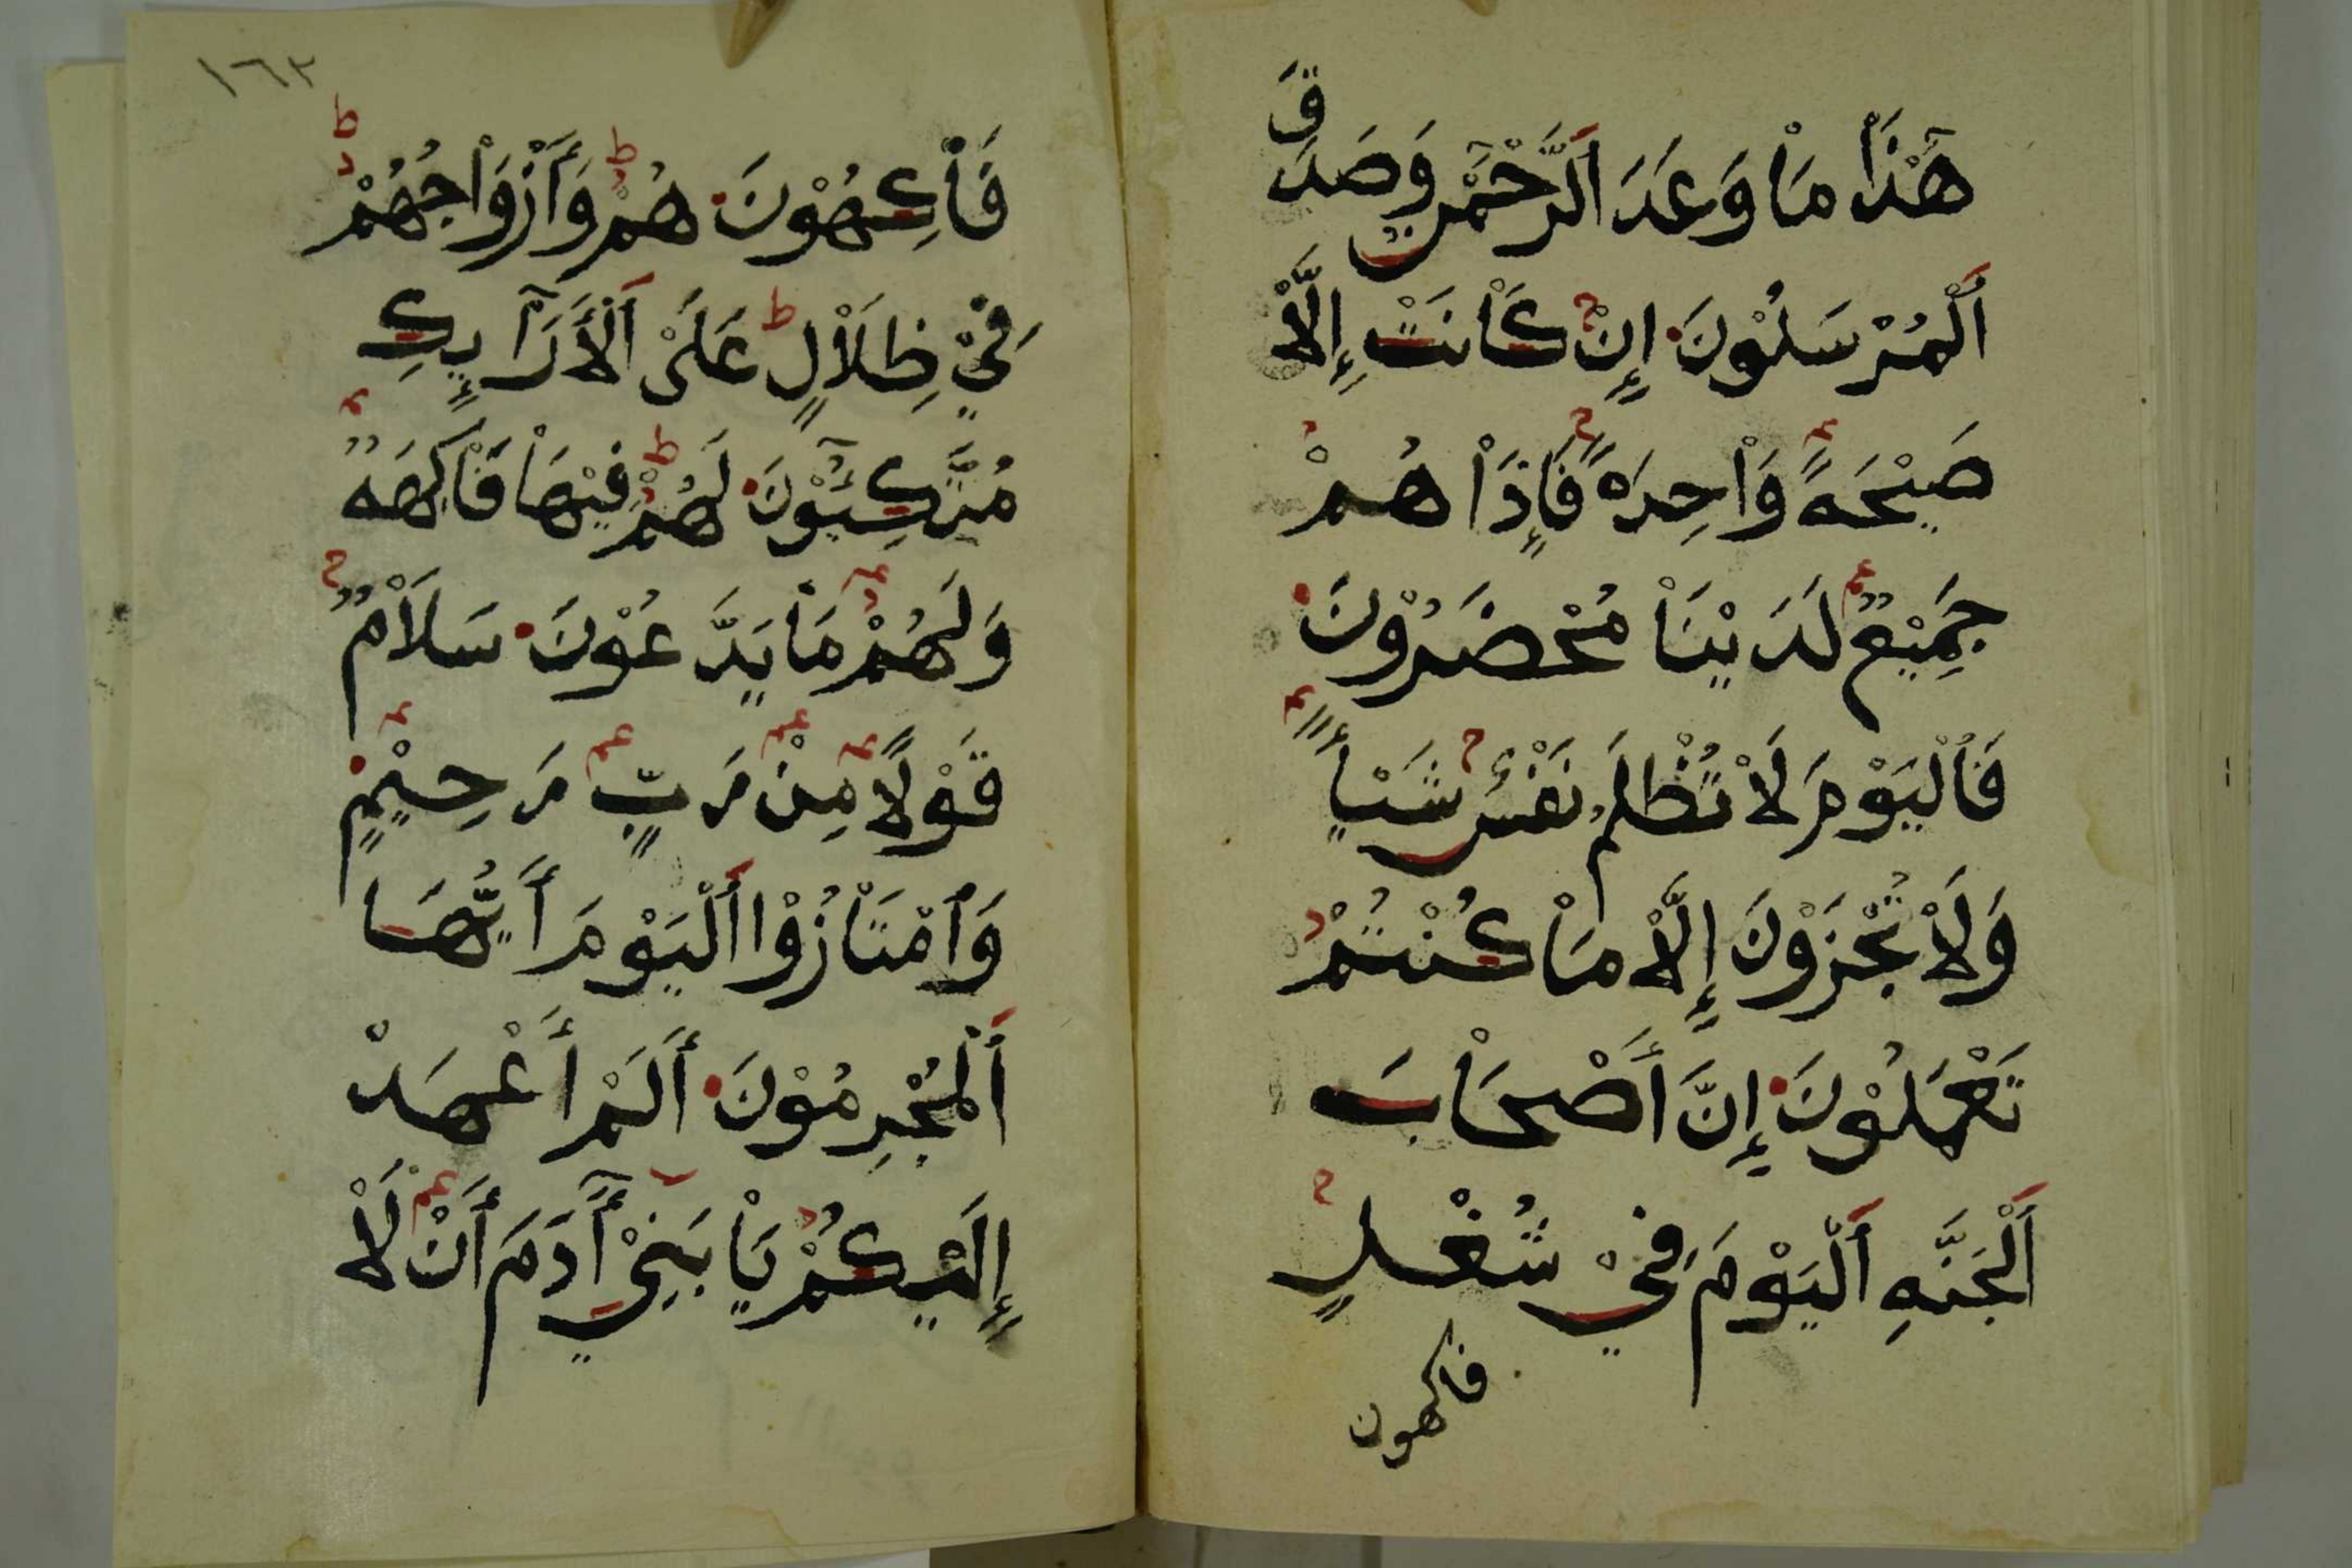 هَٰذَا مَا وَعَدَ ٱلرَّحْمَٰنُ وَصَدَقَ
ٱَلْمُرْسَلُوْنَ إِنْ كَاْنَتْ إِلَّاْ
صَيْحَهً وَاْحِدَهً فَإِذَاْ هُمْ
جَمِيْعٌ لَدَيْنَاْ مُحْضَرُوْنَ
فَٱلْيَوْمَ لَاْ تُظْلَمُ نَفْسٌ شَيْأً
وَلَاْ تُجْزَوْنَ إِلَّاْ مَاْ كُنْتُمْ
تَعْمَلُوْنَ إِنَّ أَصْحَاْبَ
ٱَلْجَنَّهِ ٱَلْيَوْمَ فِيْ شُغْلٍ
فاكهون
١٦٣
فَاْكِهُوْنَ هُمْ وَأَزْوَاْجُهُمْ
فِيْ ظِلَاْلٍ عَلَىْ ٱَلْأَرَآئِكِ
مُتَّكِئُوْنَ لَهُمْ فِيْهَاْ فَاْكِهَهٌ
وَلَهُمْ مَاْ يَدَّعُوْنَ سَلَاْمٌ
قَوْلًا مِنْ رَبٍّ رَحِيْمٍ
وَٱمْتَاْزُوْا ٱَلْيَوْمَ أَيُّهَا
ٱَلْمُجْرِمُوْنَ أَلَمْ أَعْهَدْ
إِلَيْكُمْ يَاْ بَنِيْ أَٓدَمَ أَنْ لَاْ